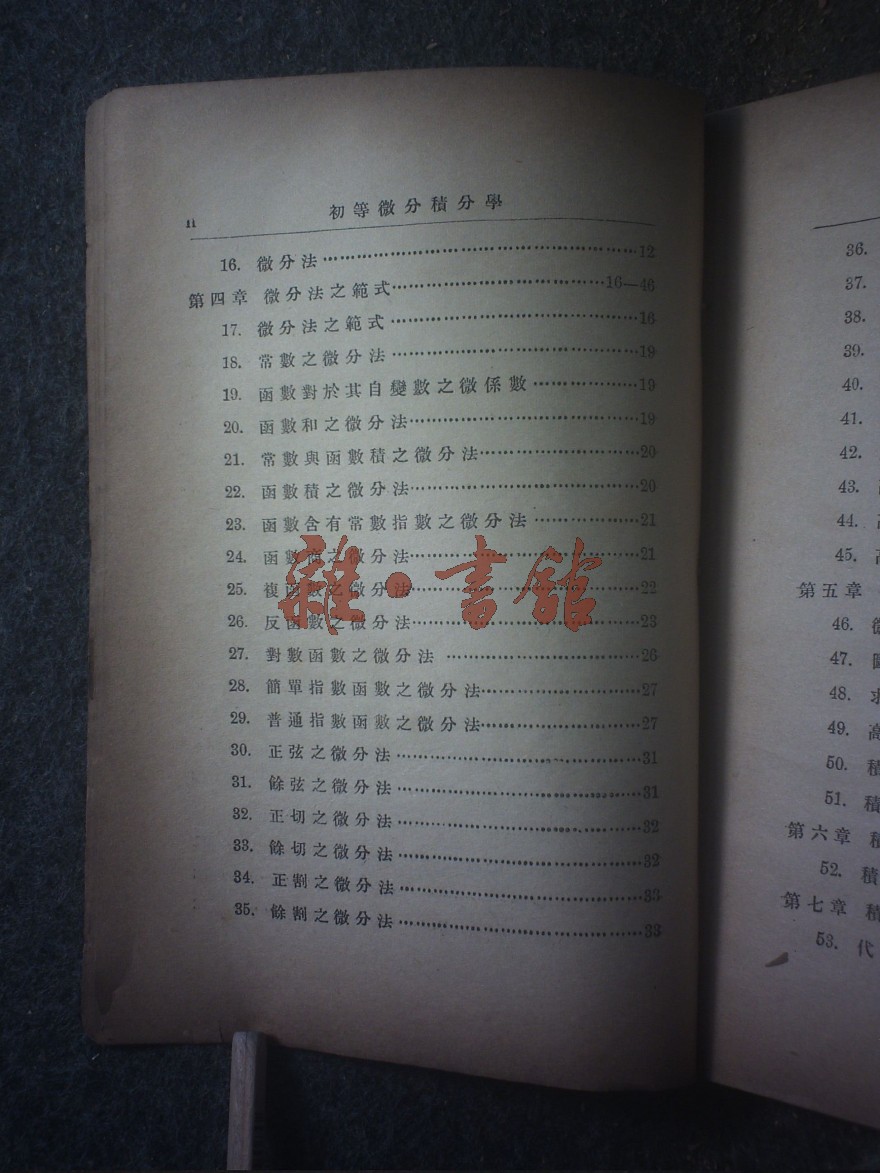 II 初等微分積分學
16. 微分法……12
第四章 微分法之範式……16—46
17. 微分法之範式……16
18. 常數之微分法……19
19. 函數對於其自變數之微係數……19
20. 函數和之微分法……19
21. 常數與函數積之微分法……20
22. 函數積之微分法……20
23. 函數含有常數指數之微分法……21
24. 函數商之微分法……21
25. 複函數之微分法……22
26. 反函數之微分法……23
27. 對數函數之微分法……26
28. 簡單指數函數之微分法……27
29. 普通指數函數之微分法……27
30. 正弦之微分法……31
31. 餘弦之微分法……31
32. 正切之微分法……32
33. 餘切之微分法……32
34. 正割之微分法……33
35. 餘割之微分法……33
雜·書館
36.
37.
38.
39.
40.
41.
42.
43.
44.
45.
第五章
46.
47.
48. 求
49. 高
50. 積
51. 積
第六章 積
52. 積
第七章 積
53. 代